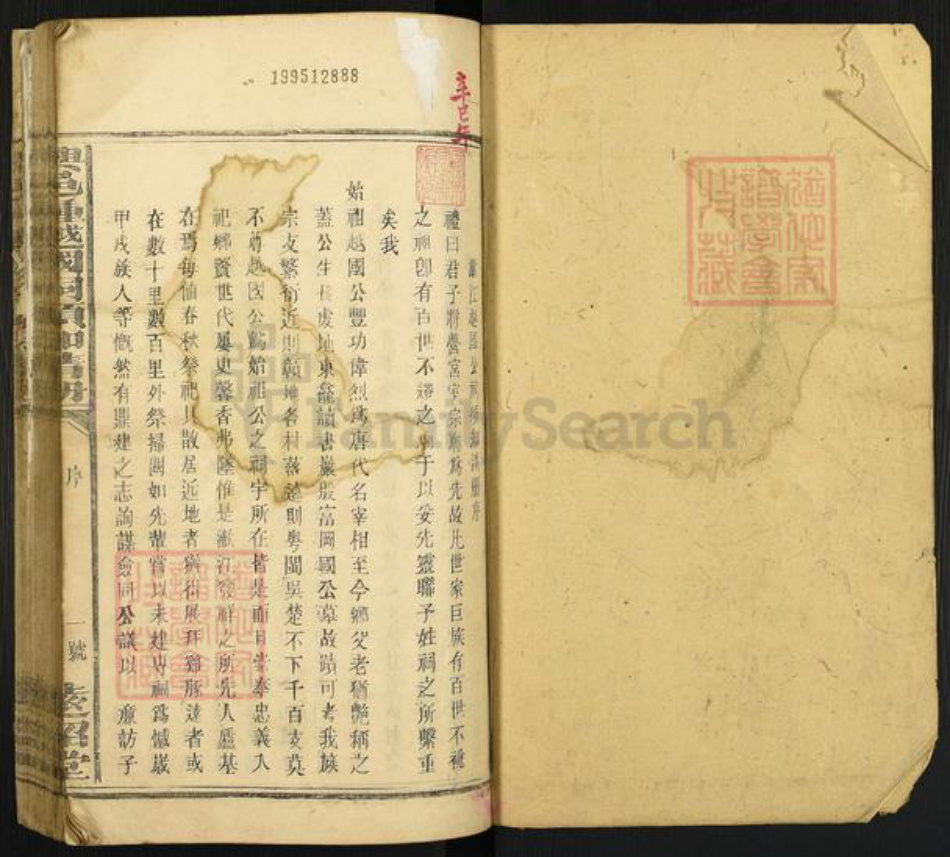 199512888
辛巳年
江越國公祠
禮曰君子將營宮室宗廟為先故凡世家巨族有百世不祧
之祖卽有百世不遷之廟于以妥先靈聯子姓祠之所繫重
矣我
始祖越國公豐功偉烈爲唐代名宰相至今鄉父老猶艷稱之
蓋公生長虔地東龕讀書巖殷富岡國公墓故蹟可考我族
宗支繁衍近則贛地各村落遠則粵閩吳楚不下千百支莫
不尊越國公爲始祖公之祠宇所在皆是而
奉忠義入
祀鄉賢世代屢更馨香弗墜惟是
江發祥之所先人
基
在焉每値春秋祭祀其散居近地者猶得展拜
遠者或
在數十里數百里外祭掃闕如先輩嘗以未建專祠爲憾歲
甲戌族人等慨然有鼎建之志詢謀僉同公議以
訪子
序
一號
堂
FamilySearch
猶他家譜學會特藏
猶他家譜學會特藏